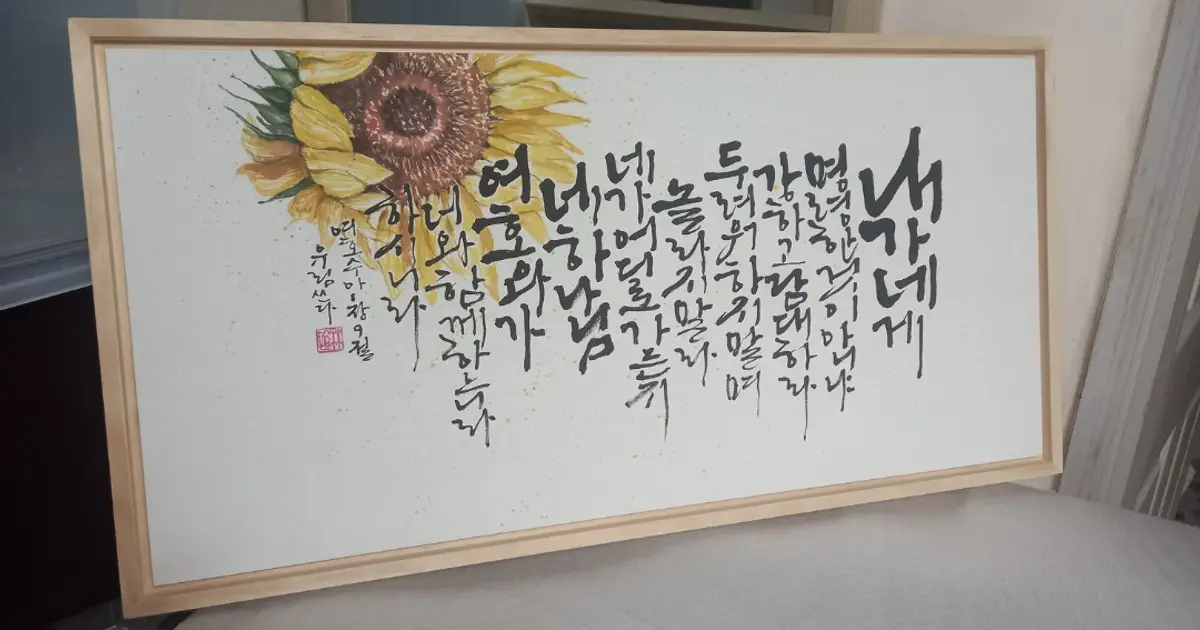 내가네게
명령한것이아니냐
강하고담대하라
두려워하지말며
놀라지말라
네가어디로가든지
네하나님
여호와가
너와함께하느니라
하시니라
여호수아1장9절
우림쓰다